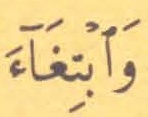 وَٱبْتِغَآءَ